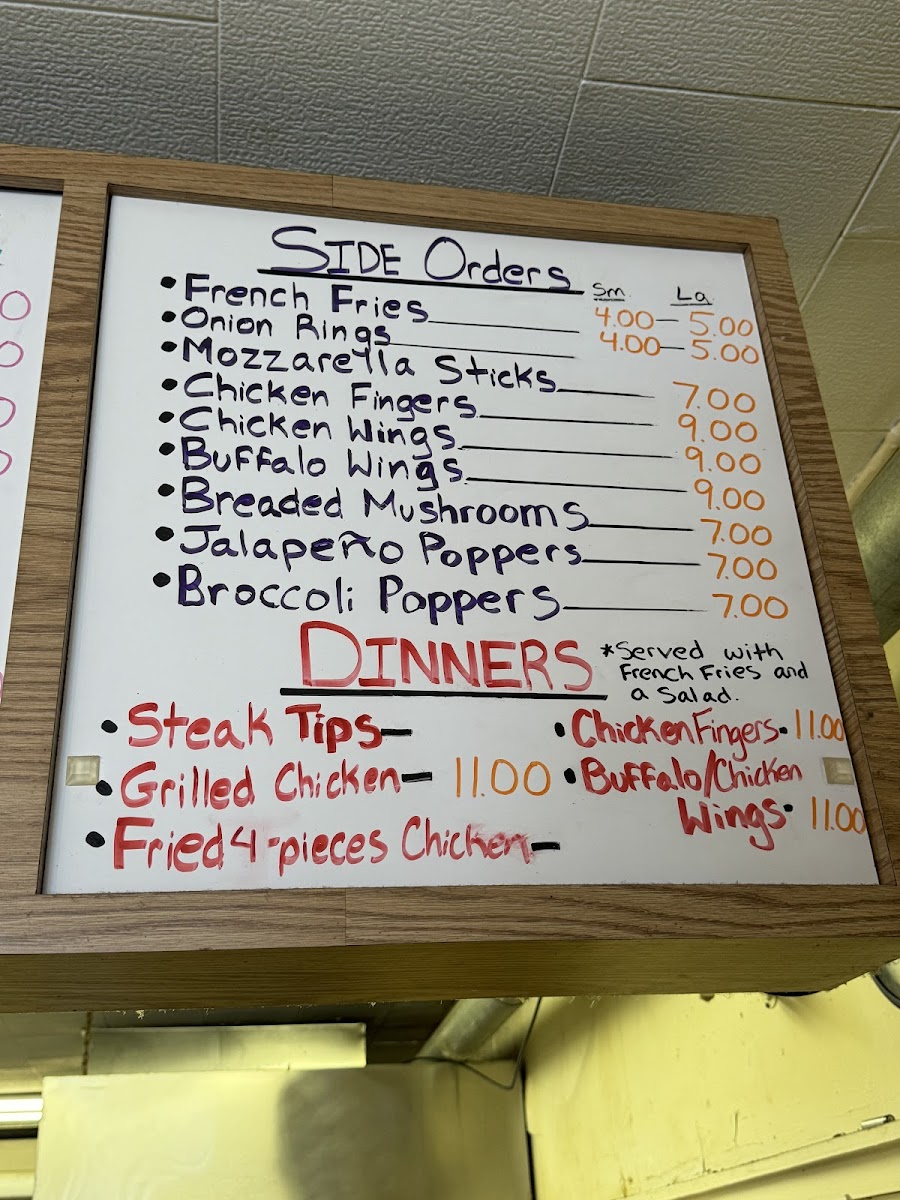 SIDE Orders
Sm. La.
• French Fries 4.00 — 5.00
• Onion Rings 4.00 — 5.00
• Mozzarella Sticks 7.00
• Chicken Fingers 9.00
• Chicken Wings 9.00
• Buffalo Wings 9.00
• Breaded Mushrooms 7.00
• Jalapeño Poppers 7.00
• Broccoli Poppers 7.00
DINNERS
*Served with
French Fries and
a Salad.
• Steak Tips —
• Grilled Chicken — 11.00
• Fried 4-pieces Chicken —
• Chicken Fingers • 11.00
• Buffalo/Chicken
Wings • 11.00